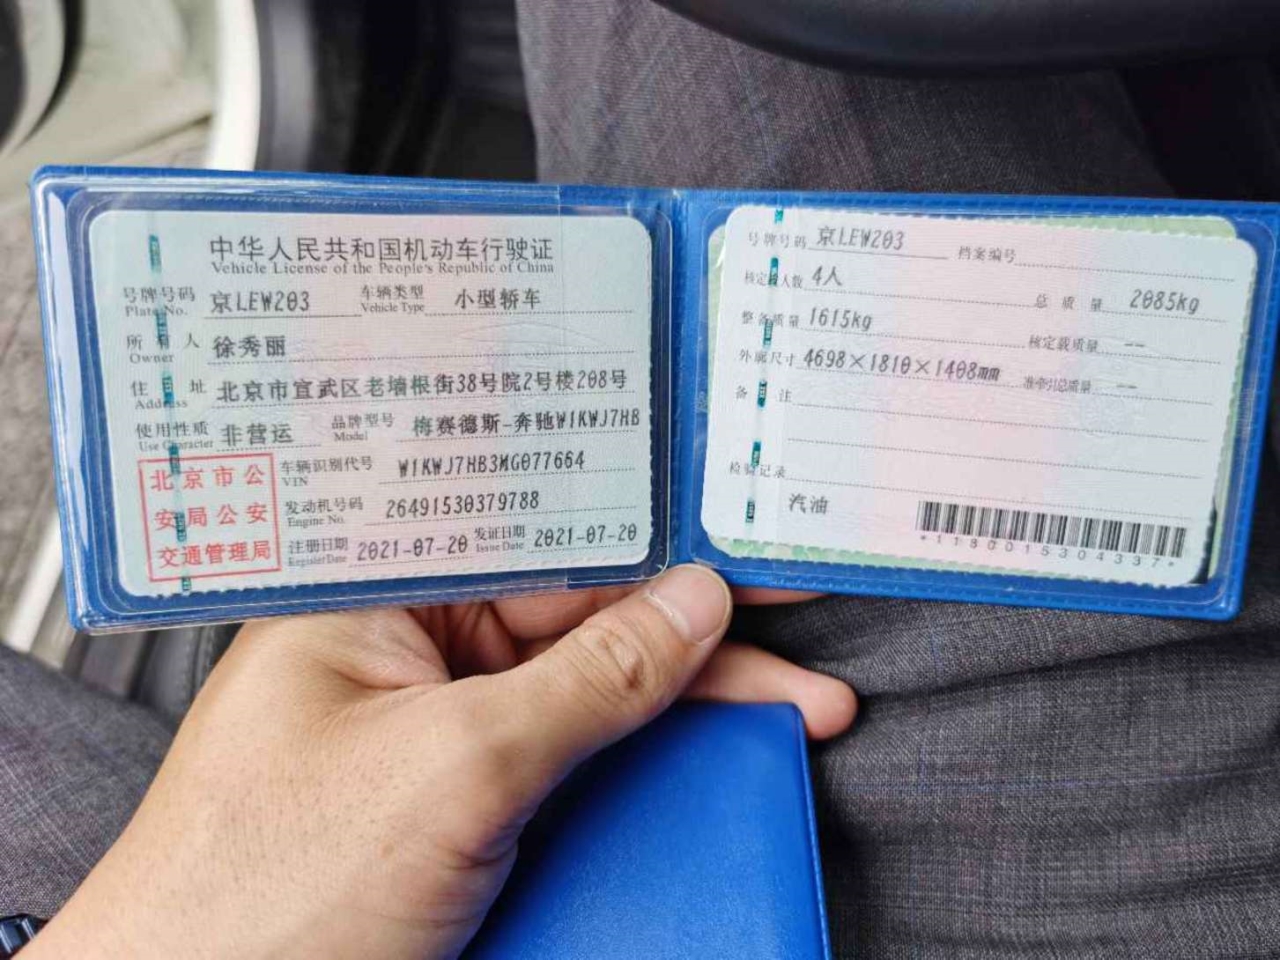 中华人民共和国机动车行驶证
Vehicle License of the People's Republic of China
号牌号码 京LEW203 车辆类型 小型轿车
Plate No. Vehicle Type
所有人 徐秀丽
Owner
住址 北京市宣武区老墙根街38号院2号楼208号
Address
使用性质 非营运 品牌型号 梅赛德斯-奔驰W1KWJ7HB
Use Character Model
北京市公
安局公安
交通管理局
车辆识别代号 W1KWJ7HB3MG077664
VIN
发动机号码 26491530379788
Engine No.
注册日期 2021-07-20 发证日期 2021-07-20
Register Date Issue Date
号牌号码 京LEW203 档案编号
核定载人数 4人 总质量 2085kg
整备质量 1615kg 核定载质量 --
外廓尺寸 4698×1810×1408mm 准牵引总质量 --
备注
检验记录
汽油
*1180015304337*